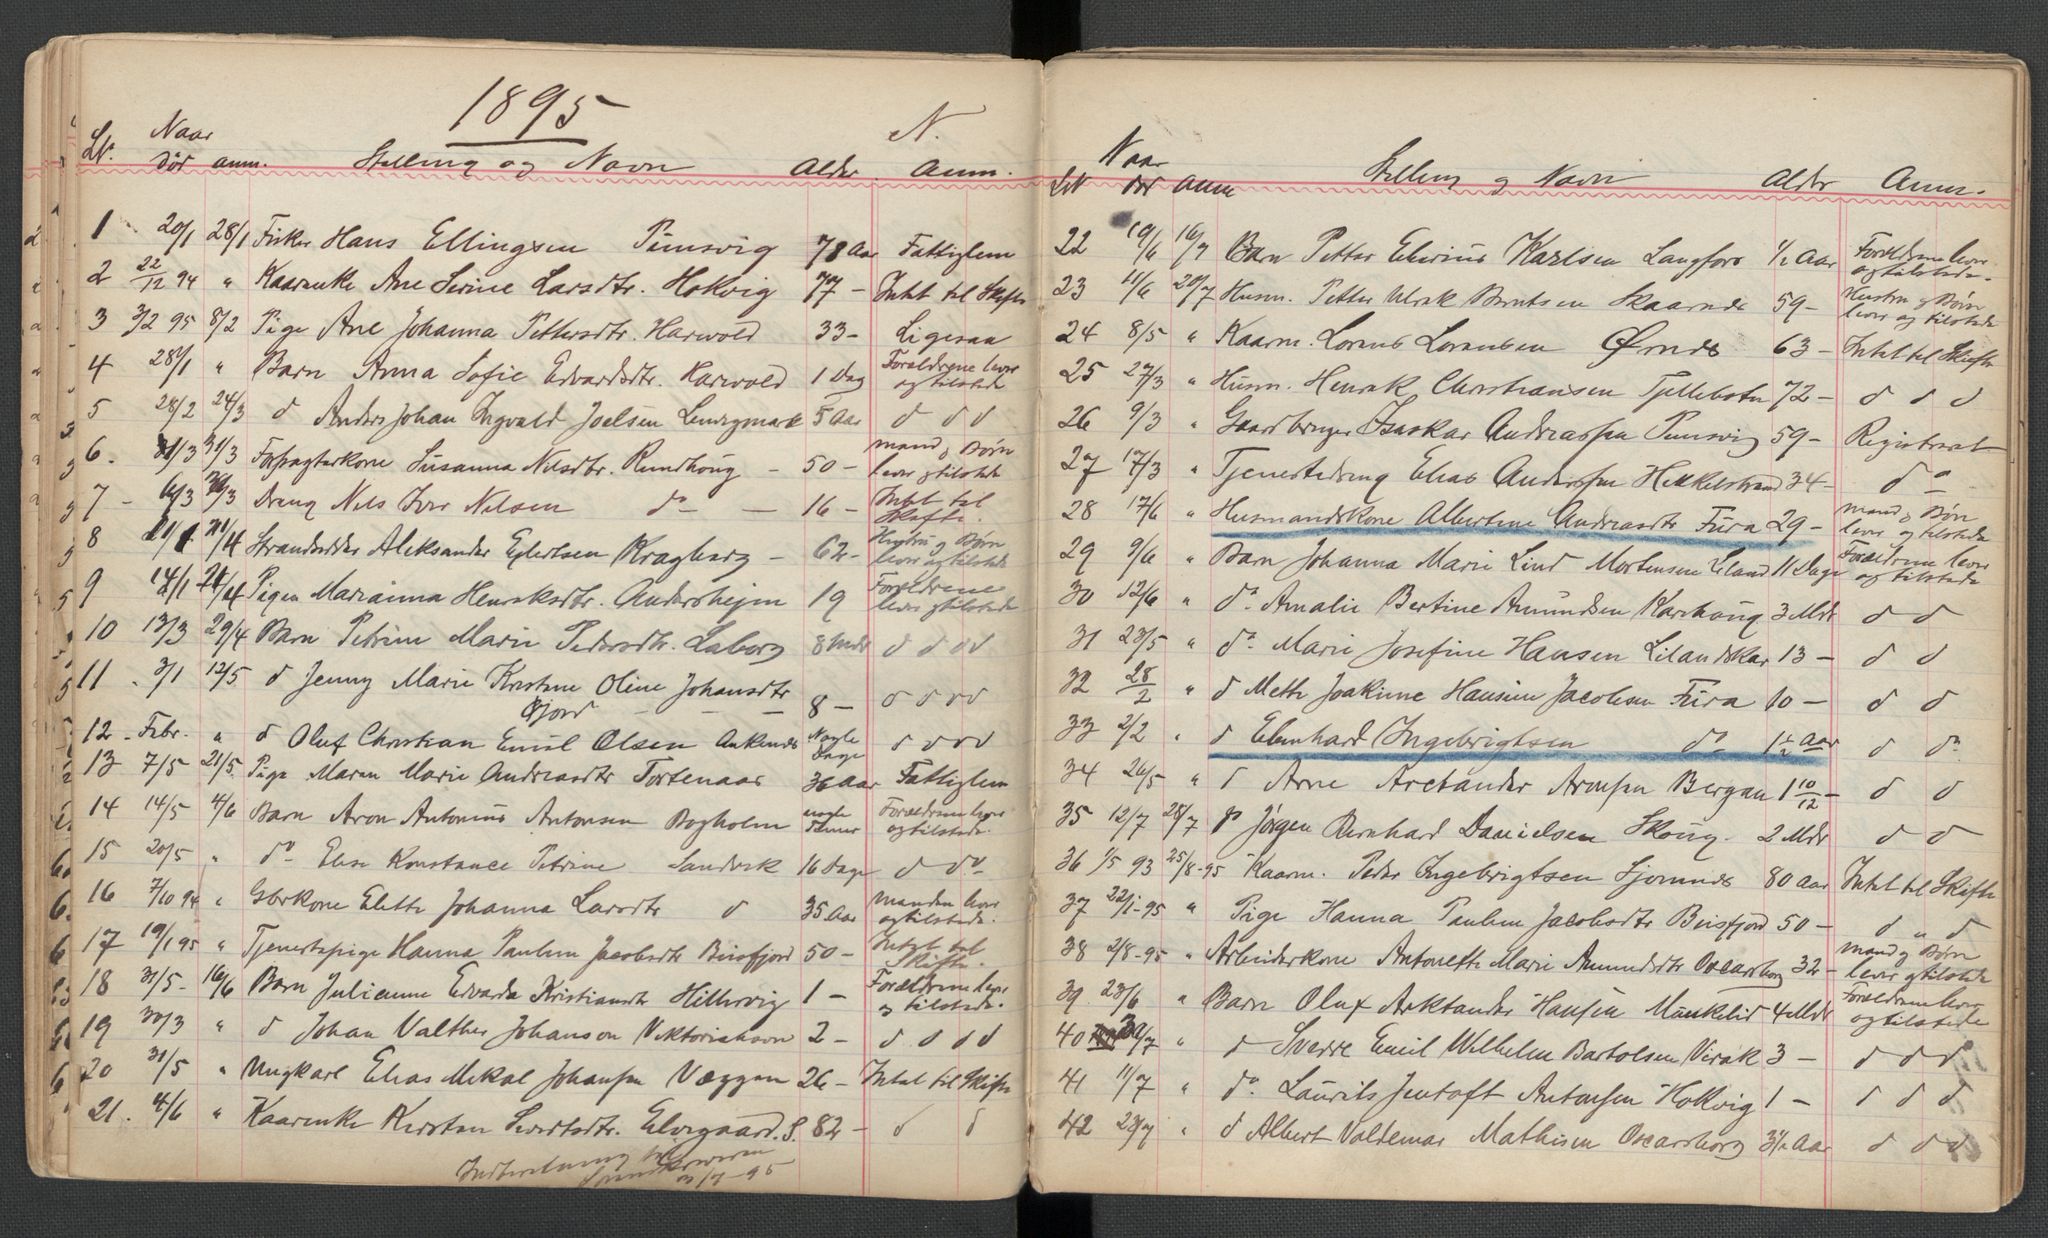 1895
N.
Naar
LN. död anm. Stilling og Navn Alder. Anm.
1 20/1 28/1 Fisker Hans Ellingsen 78 Aar Fattiglem
2 22/12 94 " Kaarenke Ane Serine Larsdtr. Hokvig 77 - Intet til Skifte
3 3/2 95 8/2 Pige Ane Johanna Pettersdtr. Harvold 33 - Ligesaa
4 28/1 " Barn Anna Sofie Edvardsdtr. Harvold 1 Dag Forældrene lever og tilstede
5 28/2 24/3 d Anders Johan Ingvald Joelsen 5 Aar d d d
6. 31/3 Forpagterkone Susanna Nilsdtr. Rundhoug - 50 - mand og Børn lever og tilstede
7 - 6/3 Dreng Nils Iver Nilsen do - 16 - Intet til Skifte.
8 21/4 Aleksander Eylertsen Kragberg - 62 - Hustru og Børn lever og tilstede
9 14/1 Pigen Marianna Henriksdtr. Andershejm 19 Forældrene lever og tilstede
10 13/3 29/4 Barn Petrine Marie Pedersdtr. Laberg 8 Mdr d d d d
11 . 3/1 12/5 d Jenny Marie Kristine Oline Johansdtr
Fjord - - - 8 - d d d d
12 - Febr. " d Oluf Christian Emil Olsen Ankenes Nogle Dage d d d d
13 7/5 21/5. Pige Maren Marie Andreasdtr Fortenaas 36 Aar Fattiglem
14 14/5 4/6 Barn Aron Antonius Antonsen Bogholm nogle Timer Forældrene lever og tilstede.
15 20/5 " do Elise Konstance Petrine Sandvik 16 Dage d do -
16 7/10 94 " Gbrkone Elette Johanna Larsdtr d 35 Aar Manden lever og tilstede.
17 19/1 95 " Tjenestepige Hanna Pauline Jacobsdtr Beisfjord 50 - Intet til Skifte.
18 31/5 - 16/6 Barn Julianne Edvarda Kristiansdtr Hillervig 1 - Forældrene lever og tilstede.
19 30/3 " d Johan Valther Johanson Viktoriahavn 2 - d d d d
20 31/5 " Ungkarl Elias Mikal Johansen Væggen 26 - Intet til Skifte
21. 4/6 " Kaarenke Kirsten Sivertsdtr. Elvegaard. S. 82 - d d
Indberetning til
95
Naar
LN död anm Stilling og Navn Alder Anm.
22 19/6 16/7 Barn Petter Karlsen Langfors 1/2 Aar Forældrene lever og tilstede.
23 11/6 20/7 Husm. Petter Ulrik Berntsen Skaarnes 59 - Hustru og Børn lever og tilstede
24 8/5 " Kaarm. Lorens Lorentsen Ørnes 63 - Intet til Skifte
25 27/3 " Husm. Henrik Christiansen Tjellebotn 72 - d d d
26 9/3 " Gaardbruger Isaskar Andreassen 59 - Registreret
27 17/3 " Tjenestedreng Elias Anderssen Hekkelstrand 34 - do -
28 17/6 " Husmandskone Albertine Andreasdtr Fura 29 - mand og Børn lever og tilstede
29 9/6 " Barn Johanna Marie Lind Mortensen Leland 11 Dage Forældrene lever og tilstede
30 12/6 " do Amalie Bertine Amundsen Karhoug 3 Mdr d d
31 23/5 " do Marie Josefine Hansen Lilandskar 13 - d d
32 28/2 " d Mette Joakime Hansine Jacobsen Fura 10 - d d
33 2/2 " d Ebenhard Ingebrigtsen do 1 1/2 Aar d do
34 26/5 " d Arne Arctander Aronsen Bergan 1 10/12 - d d
35 12/7 28/7 Jørgen Bernhard Danielsen Skoug. 2 Mdr d d
36 1/5 93 25/8-95 Kaarm. Peder Ingebrigtsen Sjomnes 80 Aar Intet til Skifte
37 22/1-95 " Pige Hanna Pauline Jacobsdtr Beisfjord 50 - d " d
38 2/8-95 " Arbeiderkone Antonette Marie Amundsdtr Oscarsborg 32 - mand og Børn lever og tilstede
39. 23/6 " Barn Oluf Arktander Hansen Maukelid 4 Mdr Forældrene lever og tilstede
40 " d Sverre Emil Wilhelm Bartolsen Virak 3 - d d d
41 11/7 " do. Laurits Jentoft Antonsen Hokvig 1 - d d d
42 28/7 " d Albert Valdemar Mathisen Oscarsborg 3 1/2 Aar d d d